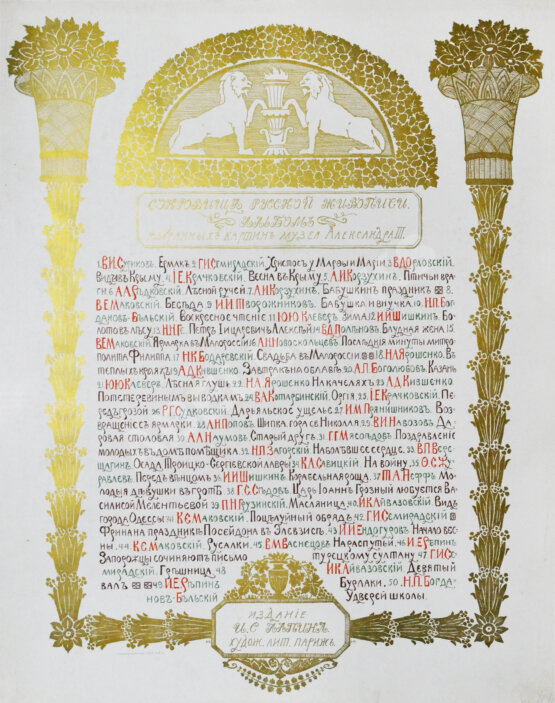 СОКРОВИЩЕ РУССКОЙ ЖИВОПИСИ.
АЛЬБОМЪ
КАРТИНЪ МУЗЕЯ АЛЕКСАНДРА III.
1.В.И.Суриковъ. Ермакъ 2 Г.И.Семирадскій. Христосъ у Марѳы и Маріи 3 В.Д.Орловскій.
Видъ въ Крыму. 4 І.Е.Крачковскій. Весна въ Крыму 5 А.И.Корзухинъ. Птичьи вра-
ги 6 А.А.Рѣдковскій Лѣсной ручей 7. А.И.Корзухинъ. Бабушкинъ праздникъ 8.
В.Е.Маковскій. Бесѣда. 9 И.И.Творожниковъ. Бабушка и внучка 10. Н.П.Бог-
дановъ-Бѣльскій. Воскресное чтеніе 11 Ю.Ю.Клеверъ. Зима 12. И.И.Шишкинъ. Бо-
лото въ лѣсу 13. Н.Н.Ге. Петръ І и царевичъ Алексѣй 14 В.Д.Полѣновъ. Блудная жена 15.
В.Е.Маковскій. Ярмарка въ Малороссіи 16 А.Н.Новоскольцевъ. Последнія минуты митро-
полита Филиппа 17 Н.К.Бодаревскій. Свадьба въ Малороссіи. 18. Н.А.Ярошенко. Въ
теплыхъ краяхъ 19 А.Д.Кившенко. Завтракъ на облавѣ 20. А.П.Боголюбовъ. Казань
21 Ю.Ю.Клеверъ. Лѣсная глушь 22. Н.А.Ярошенко На качеляхъ 23 А.Д.Кившенко.
Полетеревиннымъ выводкамъ 24 В.А.Котарбинскій. Оргія. 25 І.Е.Крачковскій. Пе-
редъ грозой 26 Р.Г.Судковскій. Дарьяльское ущелье. 27 И.М.Прянишниковъ. Воз-
вращеніе съ ярмарки. 28 А.Н.Поповъ. Шипка гора св Николая. 29. В.И.Навозовъ Да-
ровая столовая 30. А.А.Наумовъ. Старый другъ. 31 Г.Г.Мясоѣдовъ Поздравленіе
молодыхъ въ домѣ помѣщика 32. Н.П.Загорскій Наболѣвшее сердце. 33 В.П.Вере-
щагинъ. Осада Троицко-Сергіевской лавры 34 К.А.Савицкій. На войну. 35 Ф.С.Жу-
равлевъ. Передъ вѣнцомъ 36 И.И.Шишкинъ. Корабельная роща. 37 Т.А.Неффъ. Мо-
лодыя дѣвушки въ гротѣ. 38 Г.С.Сѣдовъ. Царь Іоаннъ Грозный любуется Ва-
силисой Мелентьевой 39 П.Н.Грузинскій. Масляница 40. И.К.Айвазовскій. Видъ
города Одессы 41 К.Е.Маковскій. Поцѣлуйный обрядъ 42. Г.И.Семирадскій
Фрина на праздникѣ Посейдона въ Элевзисѣ. 43 И.И.Ендогуровъ Начало вес-
ны. 44. К.Е.Маковскій. Русалки. 45. В.М.Васнецовъ На распутьи. 46 И.Е.Рѣпинъ.
Запорожцы сочиняютъ письмо турецкому султану. 47 Г.И.Се-
мирадскій. Грѣшница. 48 И.К.Айвазовскій Девятый
валъ 49 И.Е.Рѣпинъ Бурлаки. 50. Н.П.Богда-
новъ-Бѣльскій У дверей школы.
ИЗДАНІЕ
И.С. ЛАПИНА
ХУДОЖ. ЛИТ. ПАРИЖЪ.